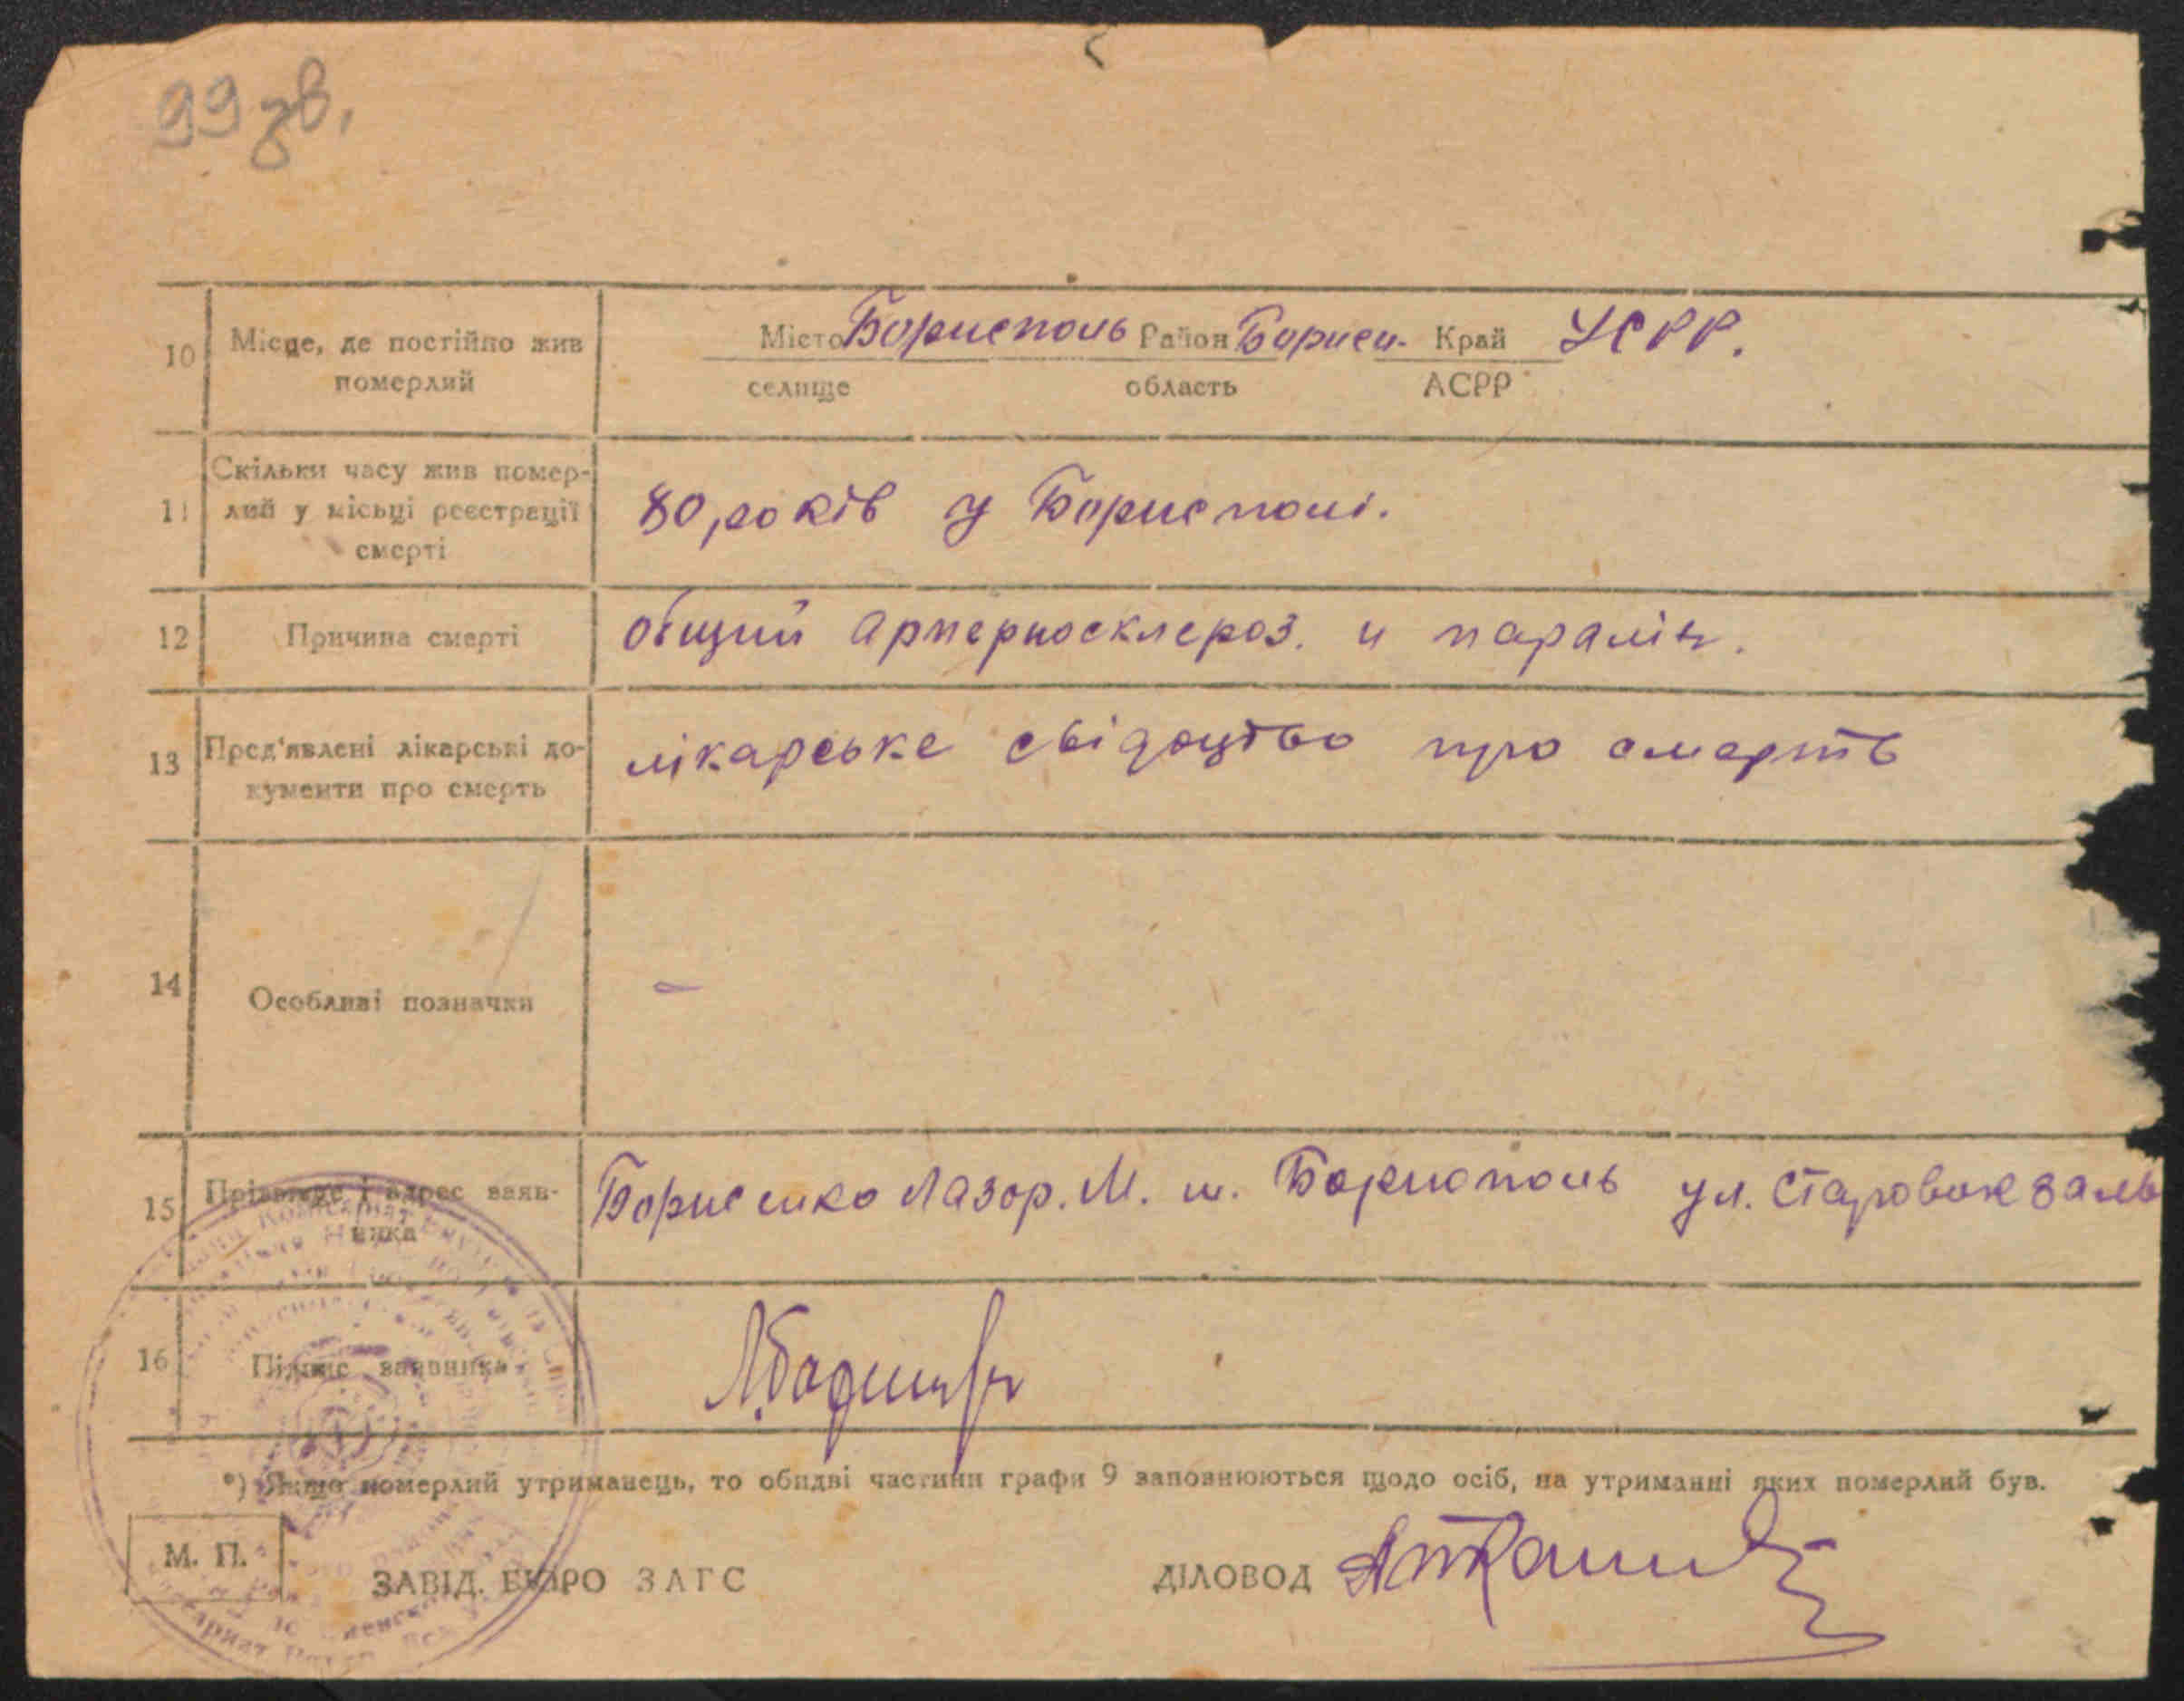 99 зв.
10 Місце, де постійно жив Місто Борисполь Район Борисп. Край УСРР.
померлий селище область АСРР
Скільки часу жив помер-
11 лий у місьці реєстрації 80, років у Борисполі.
смерті
12 Причина смерті общий артериосклероз. и параліч.
13 Пред'явлені лікарські до- лікарське свідоцтво про смерть
кументи про смерть
14 Особливі позначки —
15 Прізвище і адрес заяв- Борисенко Лазор. М. м. Борисполь ул. Старовокзаль
ника
16 Підпис заявника
*) Якщо померлий утриманець, то обидві частини графи 9 заповнюються щодо осіб, на утриманні яких померлий був.
М. П.
ЗАВІД. БЮРО ЗАГС ДІЛОВОД